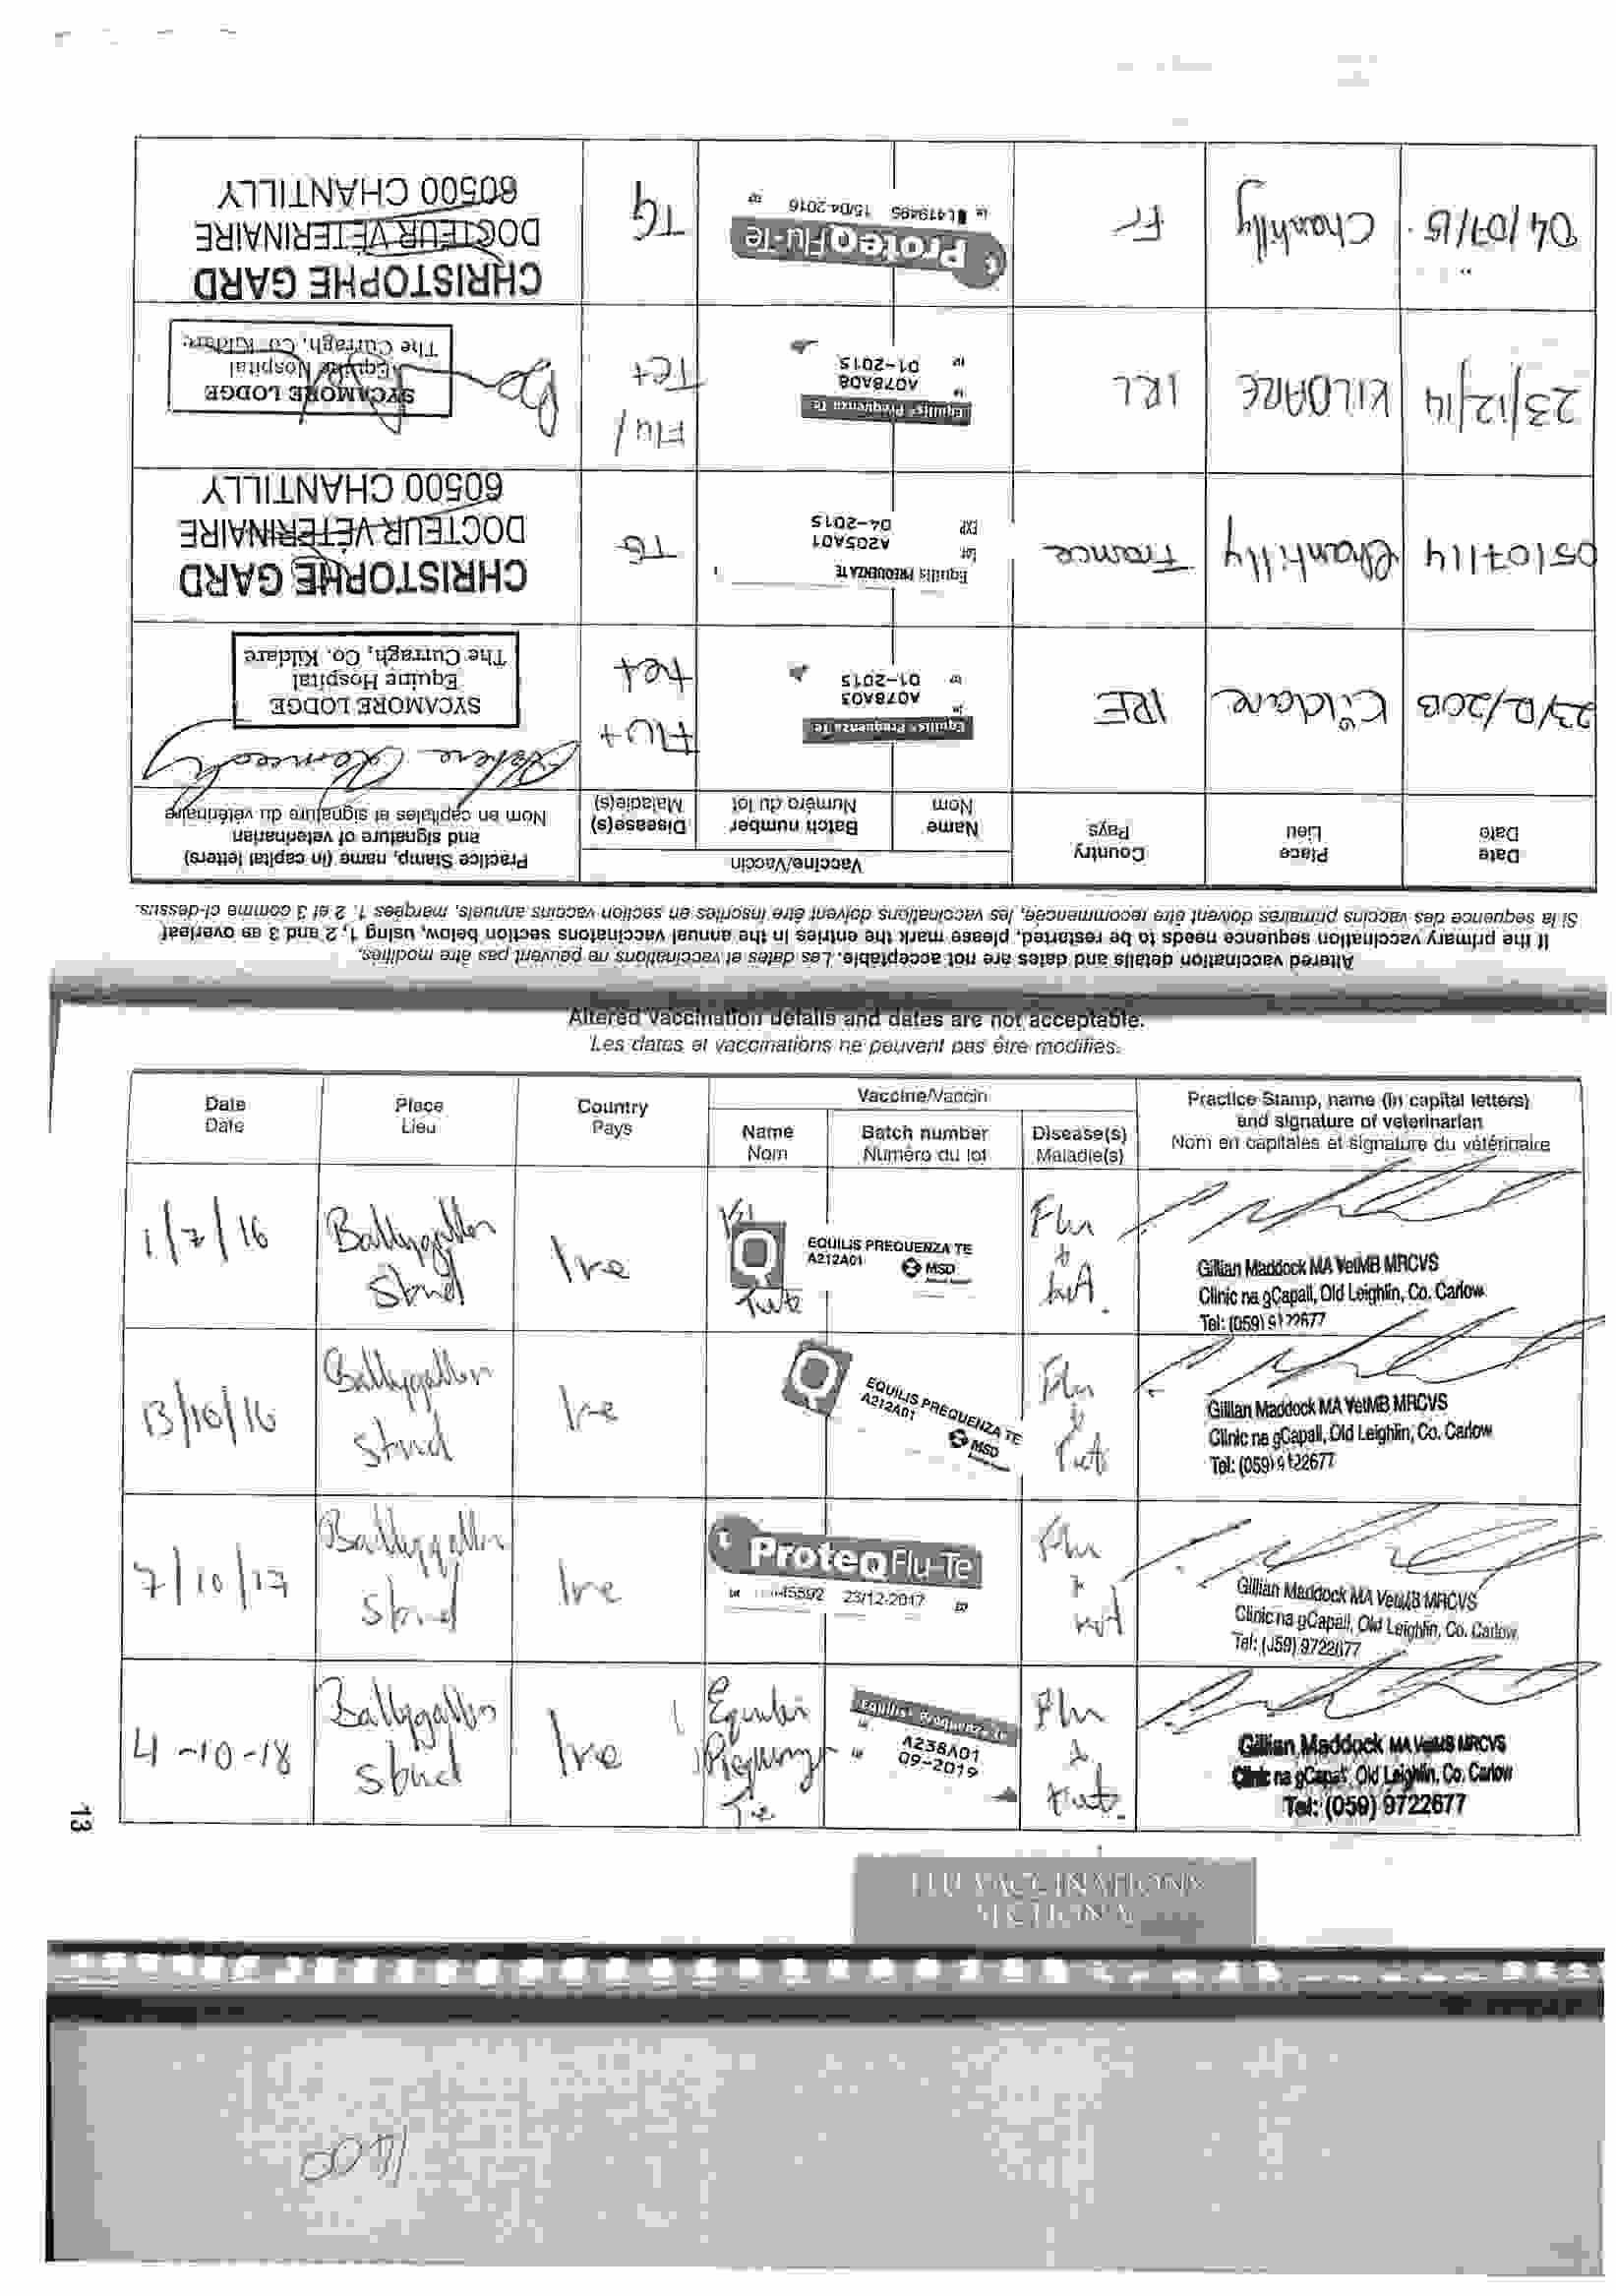 Altered vaccination details and dates are not acceptable. Les dates et vaccinations ne peuvent pas être modifiés.
If the primary vaccination sequence needs to be restarted, please mark the entries in the annual vaccinations section below, using 1, 2 and 3 as overleaf
Si la sequence des vaccins primaires doivent être recommancée, les vaccinations doivent être inscrites en section vaccins annuels, marqées 1, 2 et 3 comme ci-dessus.
Date
Date
Place
Lieu
Country
Pays
Vaccine/Vaccin
Name
Nom
Batch number
Numéro du lot
Disease(s)
Maladie(s)
Practice Stamp, name (in capital letters)
and signature of veterinarian
Nom en capitales et signature du vétérinaire
23/12/2013
Kildare
IRE
Equilis Prequenza Te
A078A03
01-2015
Flu +
tet
SYCAMORE LODGE
Equine Hospital
The Curragh, Co. Kildare
05/07/14
Chantilly
France
Equilis PREQUENZA TE
Lot A205A01
EXP 04-2015
TG
CHRISTOPHE GARD
DOCTEUR VÉTÉRINAIRE
60500 CHANTILLY
23/12/14
KILDARE
IRL
Equilis Prequenza Te
A078A08
01-2015
Flu/
Tet
SYCAMORE LODGE
Equine Hospital
The Curragh, Co. Kildare
04/07/15
Chantilly
Fr
ProteqFlu-Te
L419495 15/04/2016
TG
CHRISTOPHE GARD
DOCTEUR VÉTÉRINAIRE
60500 CHANTILLY
Altered vaccination details and dates are not acceptable.
Les dates et vaccinations ne peuvent pas être modifiés.
Date
Date
Place
Lieu
Country
Pays
Vaccine/Vaccin
Name
Nom
Batch number
Numéro du lot
Disease(s)
Maladie(s)
Practice Stamp, name (in capital letters)
and signature of veterinarian
Nom en capitales et signature du vétérinaire
1/7/16
Ballygallon
Stud
Ire
EQUILIS PREQUENZA TE
A212A01
MSD
Flu
Gillian Maddock MA VetMB MRCVS
Clinic na gCapall, Old Leighlin, Co. Carlow
Tel: (059) 9722677
13/10/16
Ballygallon
Stud
Ire
EQUILIS PREQUENZA TE
A212A01
MSD
Flu
Tet
Gillian Maddock MA VetMB MRCVS
Clinic na gCapall, Old Leighlin, Co. Carlow
Tel: (059) 9722677
7/10/17
Ballygallon
Stud
Ire
ProteqFlu-Te
45592 23/12-2017
Flu
Gillian Maddock MA VetMB MRCVS
Clinic na gCapall, Old Leighlin, Co. Carlow
Tel: (059) 9722677
4-10-18
Ballygallon
Stud
Ire
Te
Equilis Prequenza Te
A238A01
09-2019
Flu
&
tet.
Gillian Maddock MA VetMB MRCVS
Clinic na gCapall, Old Leighlin, Co. Carlow
Tel: (059) 9722677
13
FLU VACCINATIONS
SECTION A